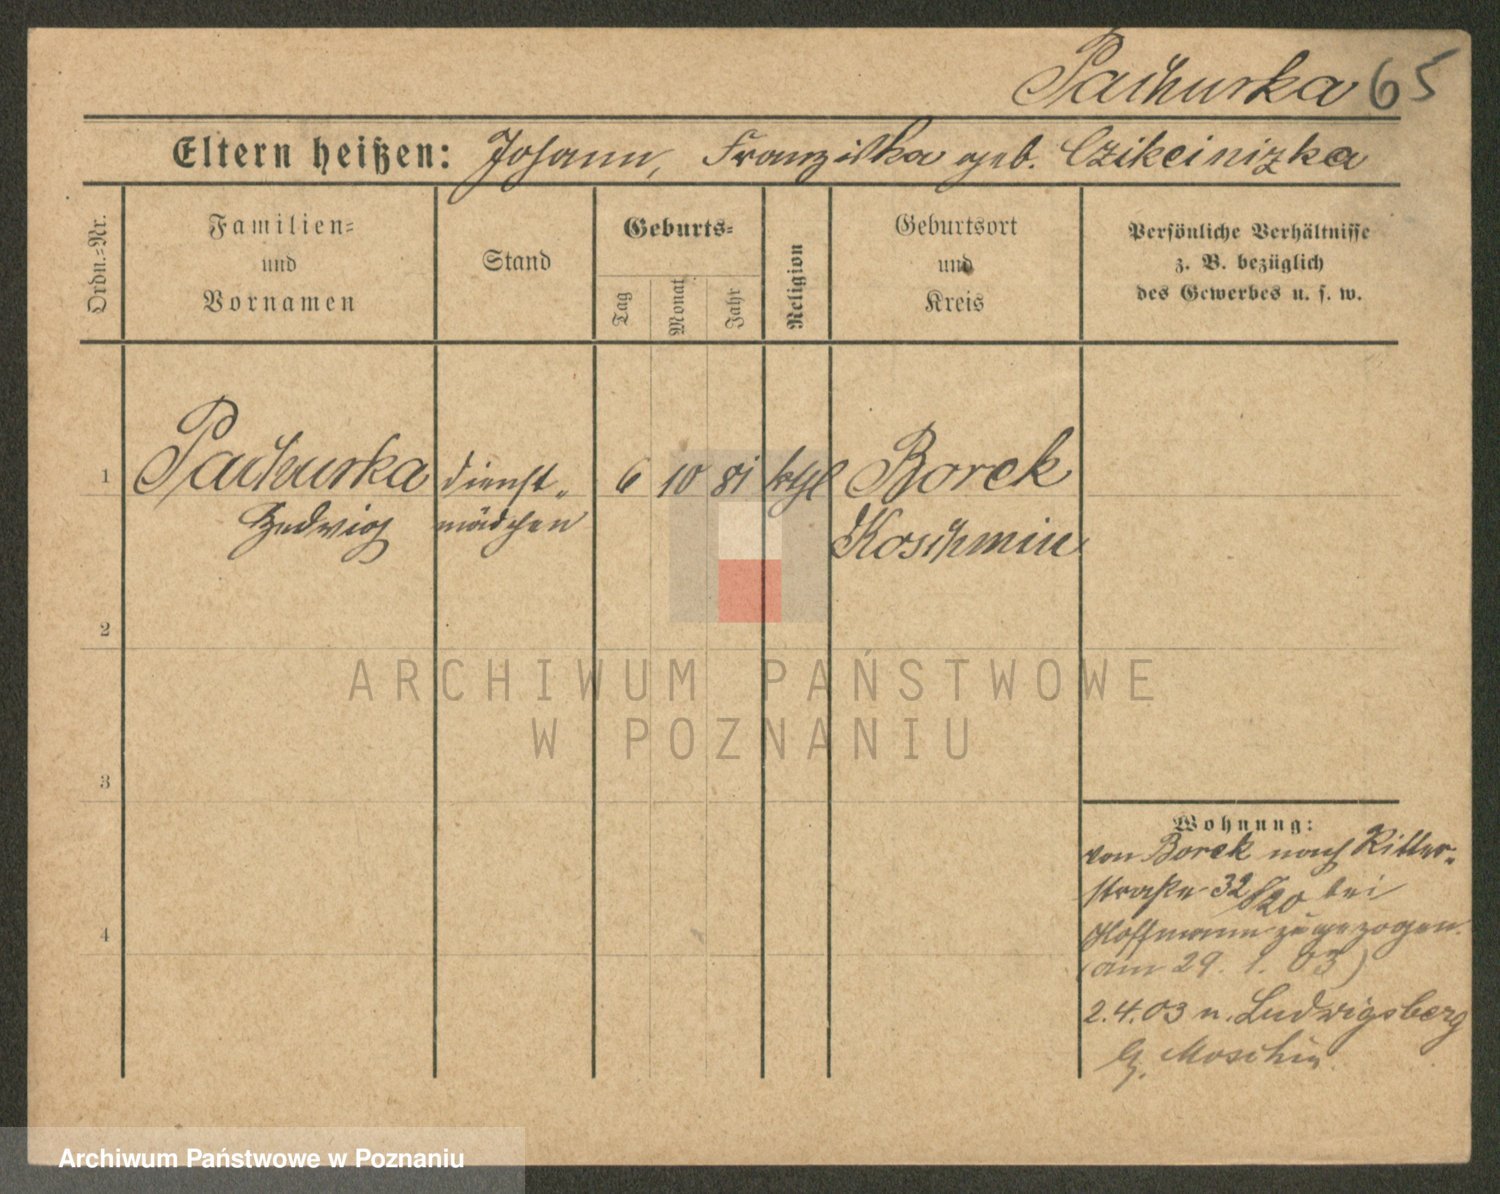 Pachurka 65
Eltern heißen: Johann, Franziska geb. Czikcinizka
Ordn.-Nr.
Familien-
und
Vornamen
Stand
Geburts-
Tag
Monat
Jahr
Religion
Geburtsort
und
Kreis
Persönliche Verhältnisse
z. B. bezüglich
des Gewerbes u. s. w.
1 Pachurka dienst- 6 10 81 kthl Borek
Hedwig mädchen Koschmin
2
3
4
Wohnung:
von Borek nach Ritter-
straße 32 bei
Hoffmann zugezogen.
(am 29. 1. 03)
2.4.03 n. Ludwigsberg
Moschin
ARCHIWUM PAŃSTWOWE
W POZNANIU
Archiwum Państwowe w Poznaniu